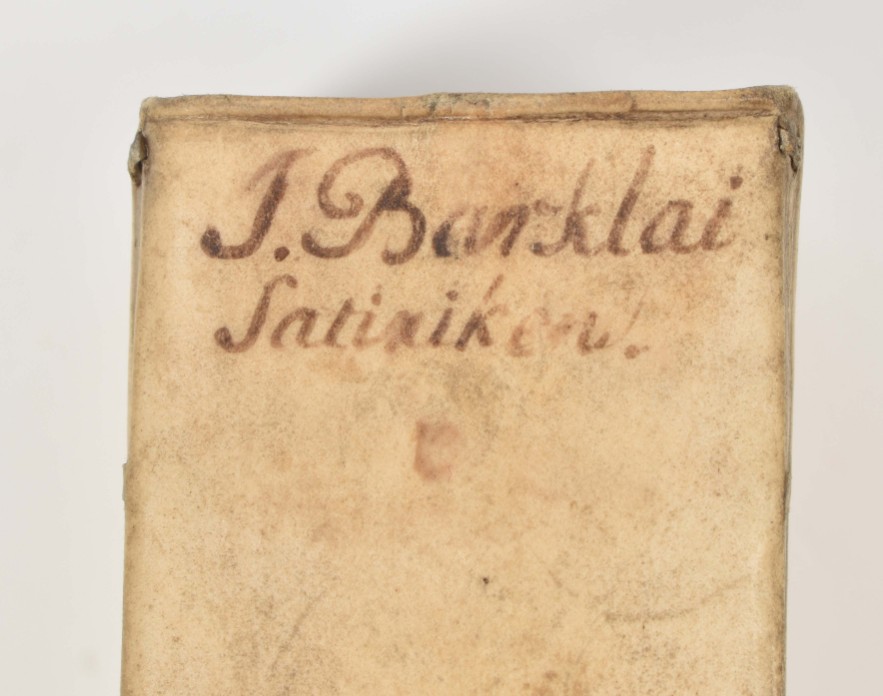 J. Barklai
Satiriken.